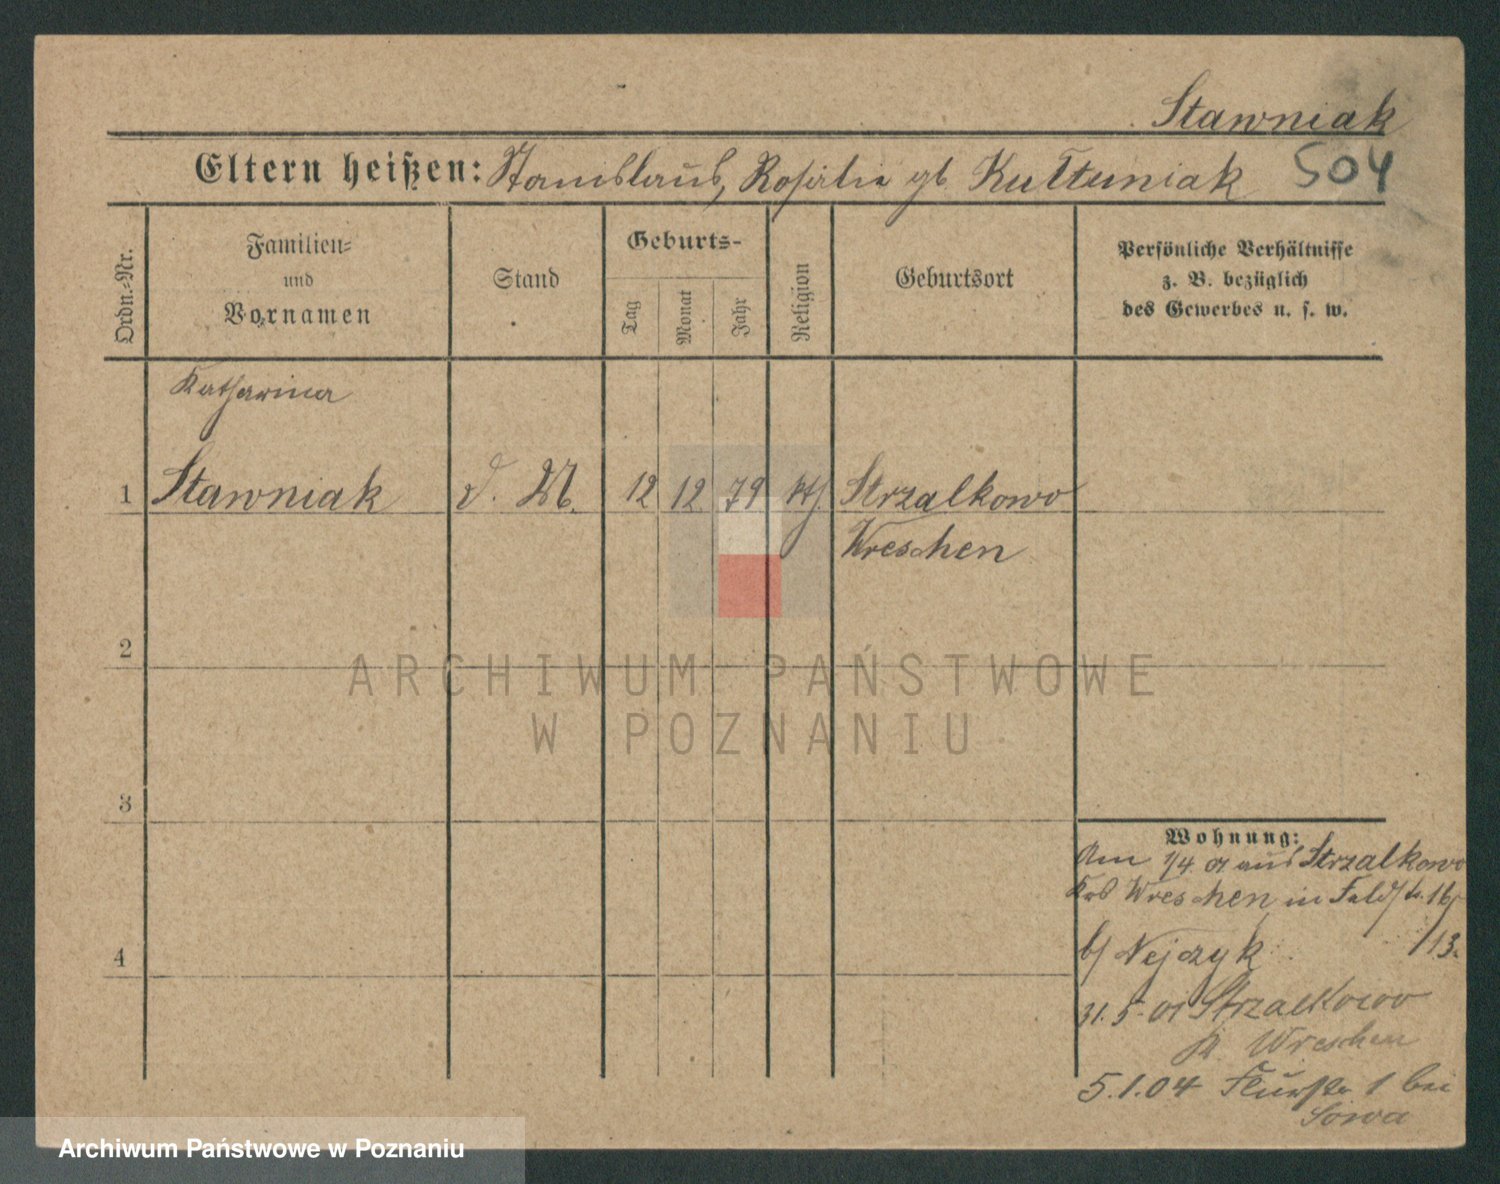 Stawniak
Eltern heißen: Stanislaus, Rosalie gb Kuttuniak 504
Ordn.-Nr.
Familien-
und
Vornamen
Stand
Geburts-
Tag
Monat
Jahr
Religion
Geburtsort
Persönliche Verhältnisse
z. B. bezüglich
des Gewerbes u. s. w.
Katharina
1 Stawniak d. M. 12 12 79 kth. Strzalkowo
Wreschen
2
3
4
Wohnung:
Am 1/4 01 aus Strzalkowo
Krs Wreschen in Feldstr. 16
b/ Nejczyk /13.
31.5.01 Strzalkowo
K. Wreschen
5.1.04 Flurstr 1 bei
Sowa
ARCHIWUM PAŃSTWOWE
W POZNANIU
Archiwum Państwowe w Poznaniu